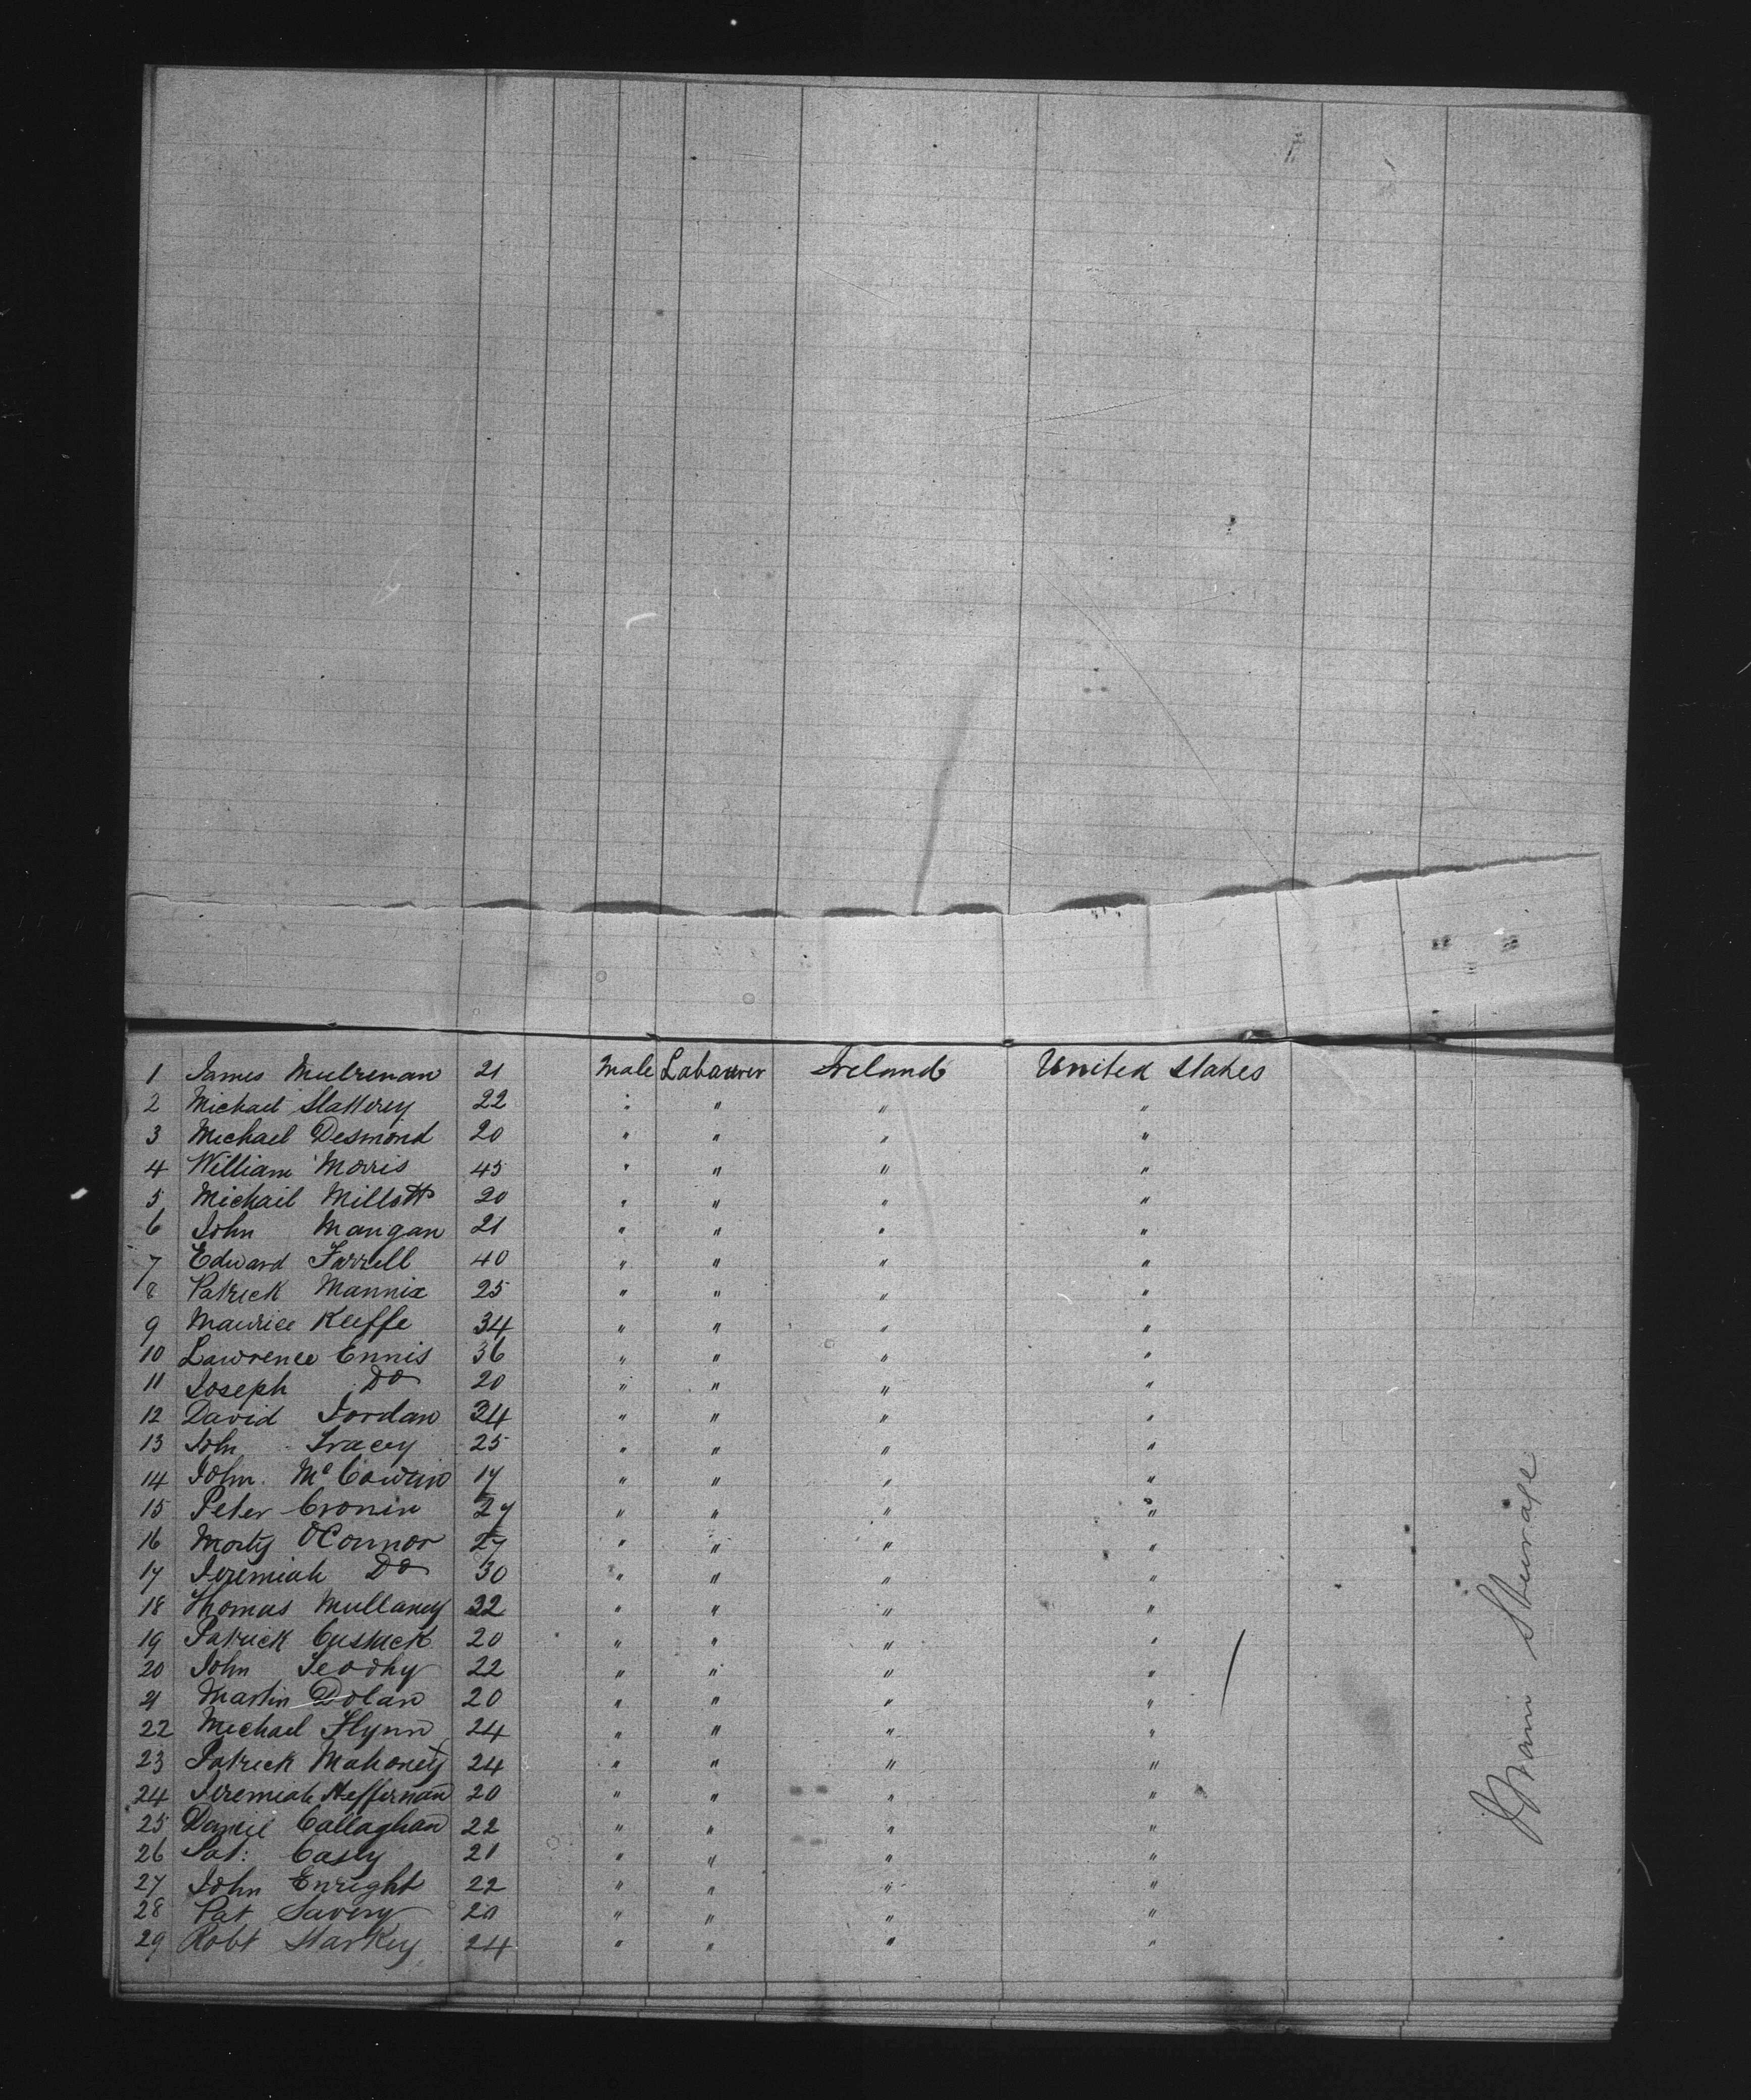 1 James Mulrenan 21 Male Labourer Ireland United States
2 Michael Slattery 22 " " " "
3 Michael Desmond 20 " " " "
4 William Morris 45 " " " "
5 Michael Millott 20 " " " "
6 John Mangan 21 " " " "
7 Edward Farrell 40 " " " "
8 Patrick Mannix 25 " " " "
9 Maurice Keeffe 34 " " " "
10 Lawrence Ennis 36 " " " "
11 Joseph Do 20 " " " "
12 David Jordan 34 " " " "
13 John Tracey 25 " " " "
14 John Mc 17 " " " "
15 Peter Cronin 27 " " " "
16 Morty OConnor 27 " " " "
17 Jeremiah Do 30 " " " "
18 Thomas Mullaney 22 " " " "
19 Patrick Cusack 20 " " " "
20 John 22 " " " "
21 Martin Dolan 20 " " " "
22 Michael Flynn 24 " " " "
23 Patrick Mahoney 24 " " " "
24 Jeremiah Heffernan 20 " " " "
25 Daniel Callaghan 22 " " " "
26 Pat: Casey 21 " " " "
27 John Enright 22 " " " "
28 Pat Savery " " " "
29 Robt Starkey 24 " " " "
Main Steerage